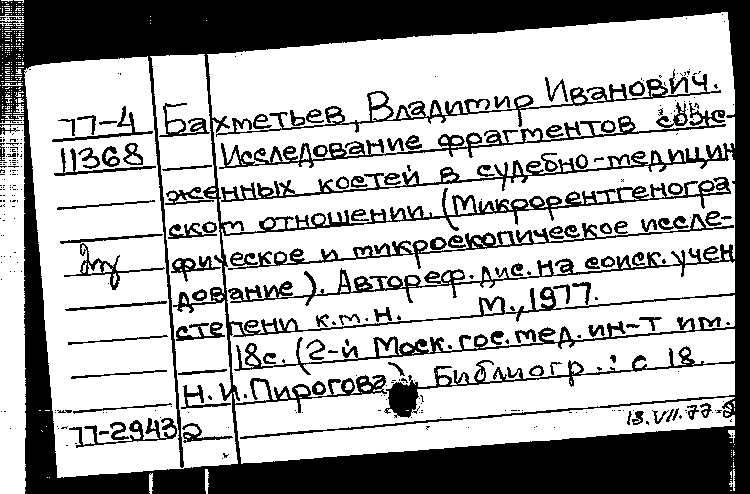 77-4 Бахметьев, Владимир Иванович.
11368 Исследование фрагментов сож-
женных костей в судебно-медицин
ском отношении. (Микрорентгеногра-
фическое и микроскопическое иссле-
дование). Автореф. дис. на соиск. учен
степени к.м.н. М., 1977.
18с. (2-й Моск. гос. мед. ин-т им.
Н.И.Пирогова) Библиогр.: с 18.
77-29432 13.VII.77-